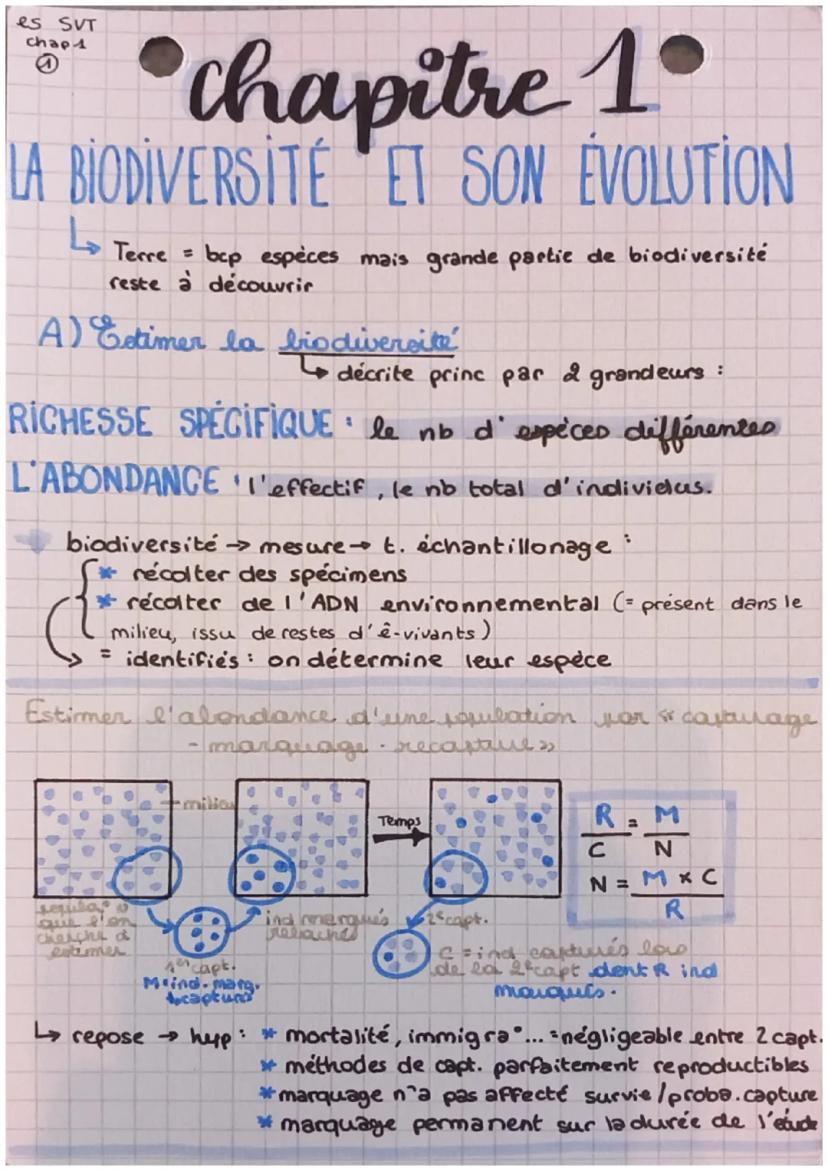 es SVT
chap 1
1
chapitre 1
LA BIODIVERSITÉ ET SON ÉVOLUTION
↳ Terre = bcp espèces mais grande partie de biodiversité
reste à découvrir
A) Estimer la biodiversité
↳ décrite princ par 2 grandeurs :
RICHESSE SPÉCIFIQUE : le nb d'espèces différentes
L'ABONDANCE : l'effectif, le nb total d'individus.
biodiversité → mesure → t. échantillonage :
* récolter des spécimens
* récolter de l'ADN environnemental (= présent dans le
milieu, issu de restes d'ê-vivants)
= identifiés : on détermine leur espèce
Estimer l'abondance d'une population par « capturage
- marquage - recapture »
milieu
Temps
R/C = M/N
N = M × C / R
que l'on
cherche à
estimer
1ère capt.
M = ind. marq.
+ capturés
ind marqués
relachés
2e capt.
C = ind capturés lors
de la 2e capt dont R ind
marqués.
↳ repose → hyp : * mortalité, immigra°... = négligeable entre 2 capt.
* méthodes de capt. parfaitement reproductibles
* marquage n'a pas affecté survie/proba. capture
* marquage permanent sur la durée de l'étude